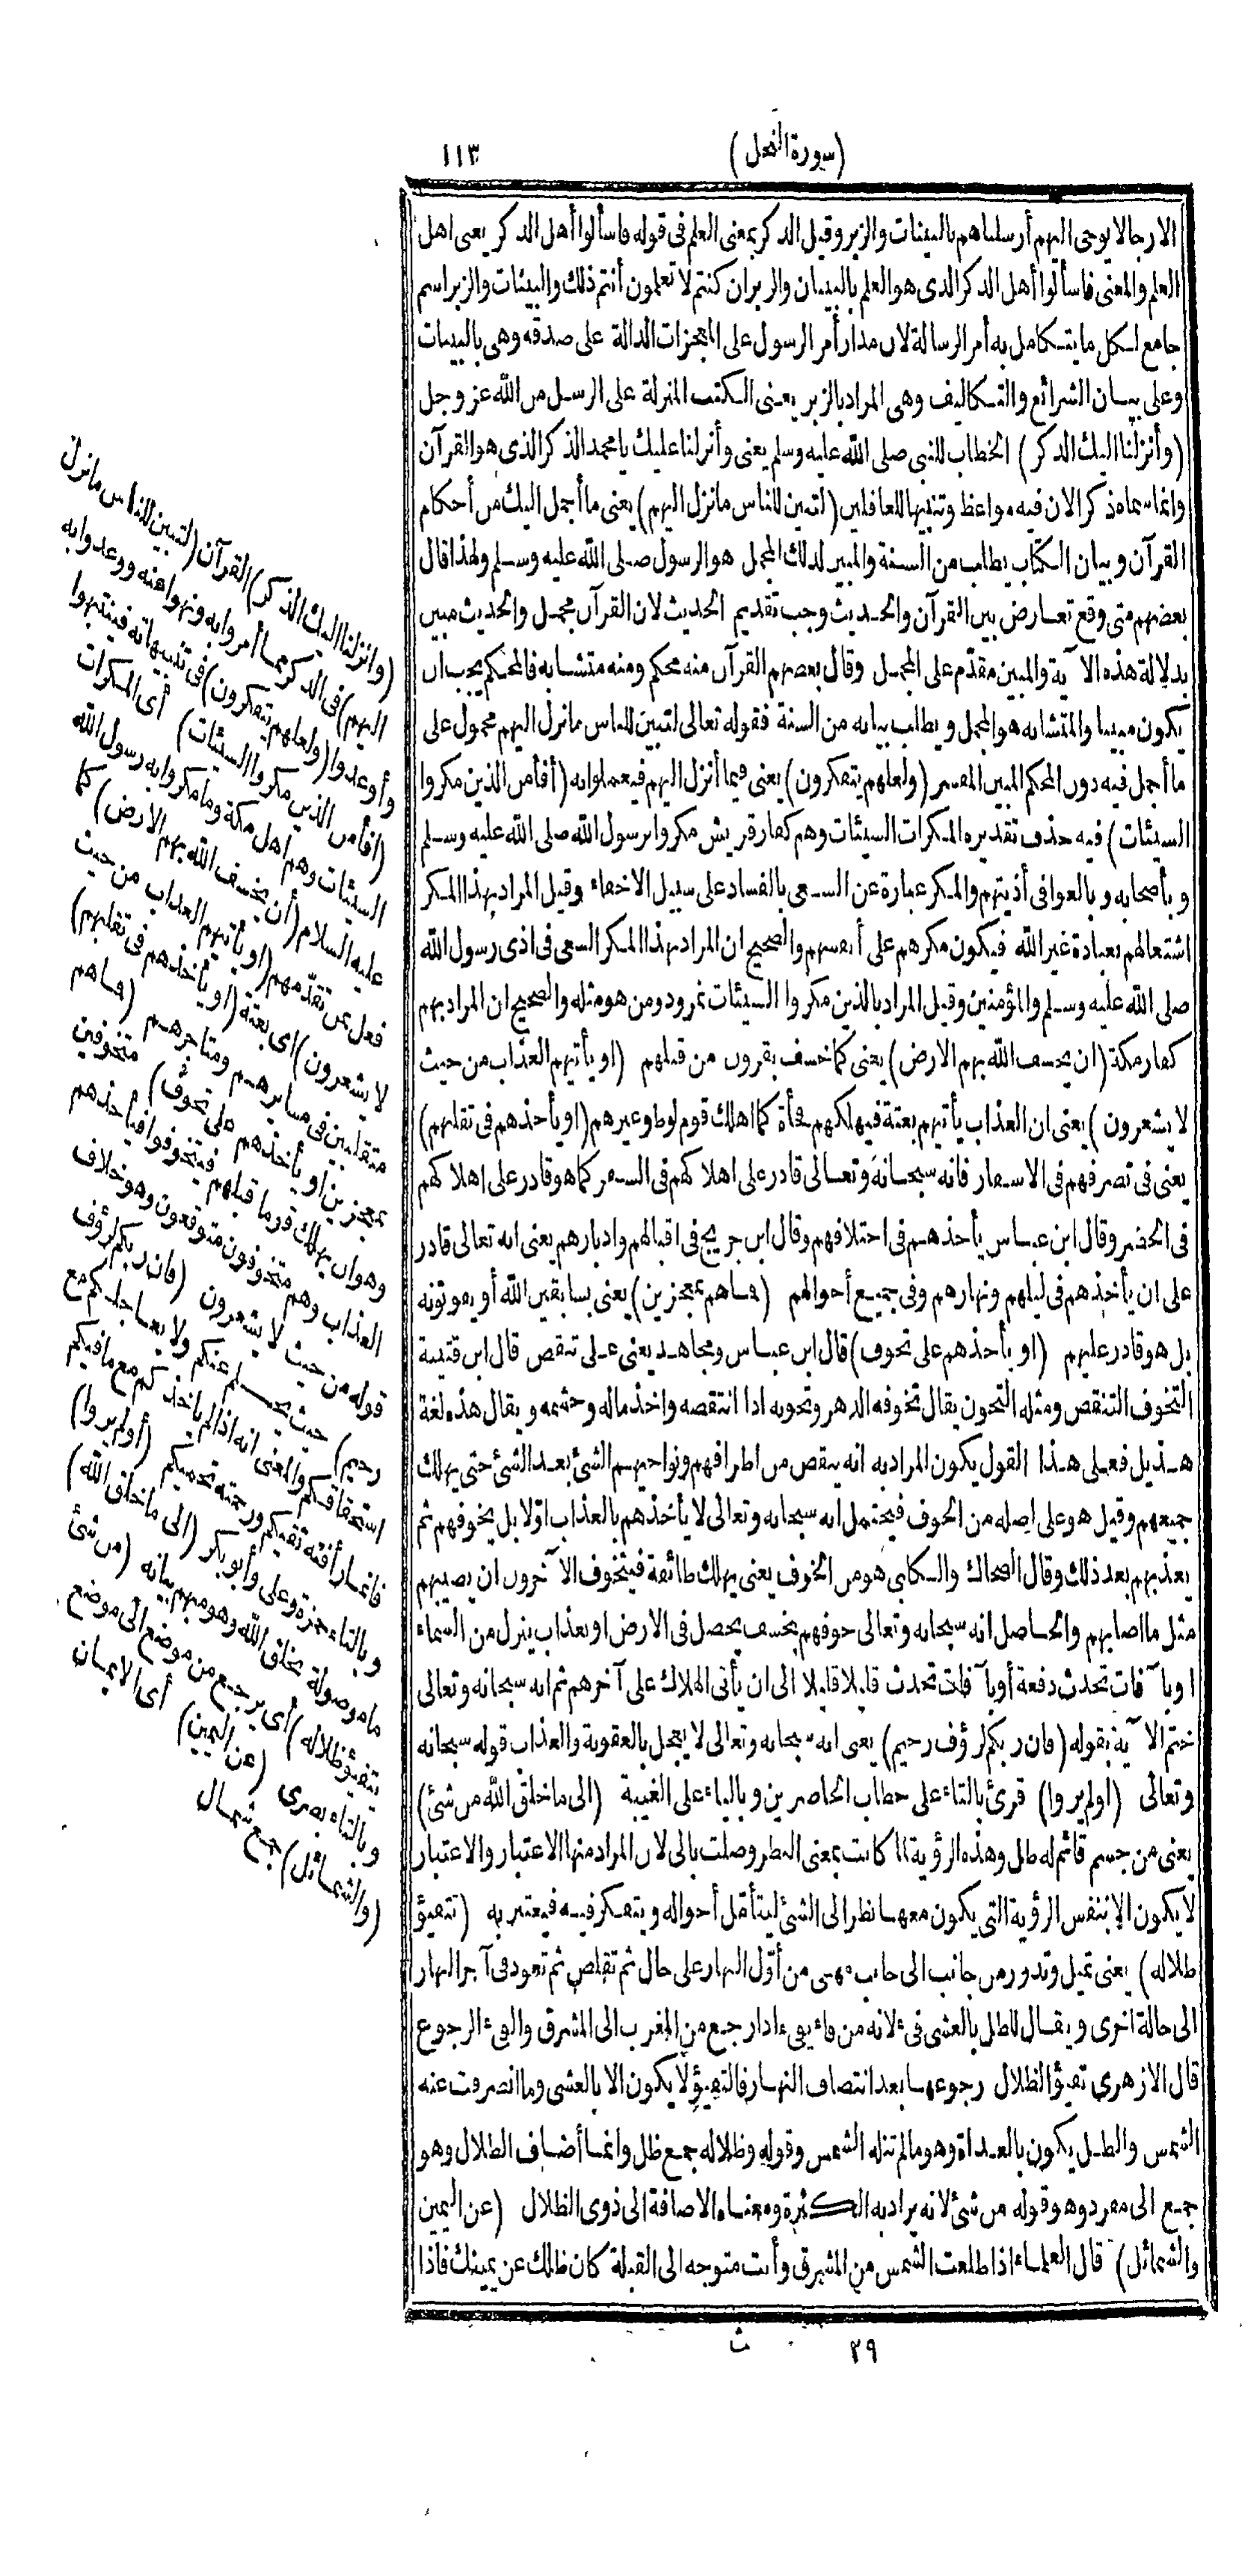 (سورة النحل)
١١٣
الا رجالا يوحى اليهم أرسلناهم بالبينات والزبر وقيل الذكر بمعنى العلم فى قوله فاسألوا أهل الذكر يعنى اهل
العلم والمعنى فاسألوا أهل الذكر الذى هو العلم بالبينات والزبر ان كنتم لا تعلمون أنتم ذلك والبينات والزبر اسم
جامع لكل ما يتكامل به أمر الرسالة لان مدار أمر الرسول على المعجزات الدالة على صدقه وهى بالبينات
وعلى بيان الشرائع والتكاليف وهى المراد بالزبر يعنى الكتب المنزلة على الرسل من الله عز وجل
(وأنزلنا اليك الذكر) الخطاب للنبى صلى الله عليه وسلم يعنى وأنزلنا عليك يا محمد الذكر الذى هو القرآن
وانما سماه ذكرا لان فيه مواعظ وتنبيها للغافلين (لتبين للناس ما نزل اليهم) يعنى ما أجمل اليك من أحكام
القرآن وبيان الكتاب يطلب من السنة والمبين لذلك المجمل هو الرسول صلى الله عليه وسلم ولهذا قال
بعضهم متى وقع تعارض بين القرآن والحديث وجب تقديم الحديث لان القرآن مجمل والحديث مبين
بدلالة هذه الآية والمبين مقدّم على المجمل وقال بعضهم القرآن منه محكم ومنه متشابه فالمحكم يجب ان
يكون مبينا والمتشابه هو المجمل ويطلب بيانه من السنة فقوله تعالى لتبين للناس ما نزل اليهم محمول على
ما أجمل فيه دون المحكم المبين المفسر (ولعلهم يتفكرون) يعنى فيما أنزل اليهم فيعملوا به (أفأمن الذين مكروا
السيئات) فيه حذف تقديره المكرات السيئات وهم كفار قريش مكروا برسول الله صلى الله عليه وسلم
وبأصحابه وبالغوا فى أذيتهم والمكر عبارة عن السعى بالفساد على سبيل الاخفاء وقيل المراد بهذا المكر
اشتغالهم بعبادة غير الله فيكون مكرهم على أنفسهم والصحيح ان المراد بهذا المكر السعى فى اذى رسول الله
صلى الله عليه وسلم والمؤمنين وقيل المراد بالذين مكروا السيئات نمرود ومن هو مثله والصحيح ان المراد بهم
كفار مكة (ان يخسف الله بهم الارض) يعنى كما خسف بقرون من قبلهم (او يأتيهم العذاب من حيث
لا يشعرون) يعنى ان العذاب يأتيهم بغتة فيهلكهم فجأة كما اهلك قوم لوط وغيرهم (او يأخذهم فى تقلبهم)
يعنى فى تصرفهم فى الاسفار فانه سبحانه وتعالى قادر على اهلاكهم فى السفر كما هو قادر على اهلاكهم
فى الحضر وقال ابن عباس يأخذهم فى اختلافهم وقال ابن جريج فى اقبالهم وادبارهم يعنى انه تعالى قادر
على ان يأخذهم فى ليلهم ونهارهم وفى جميع أحوالهم (فما هم بمعجزين) يعنى بسابقين الله أو يفوتونه
بل هو قادر عليهم (او يأخذهم على تخوف) قال ابن عباس ومجاهد يعنى على تنقص قال ابن قتيبة
التخوف التنقص ومثله التخون يقال تخوفه الدهر وتخونه اذا انتقصه واخذ ماله وحشمه ويقال هذه لغة
هذيل فعلى هذا القول يكون المراد به انه ينقص من اطرافهم ونواحيهم الشئ بعد الشئ حتى يهلك
جميعهم وقيل هو على اصله من الخوف فيحتمل انه سبحانه وتعالى لا يأخذهم بالعذاب اوّلا بل يخوفهم ثم
يعذبهم بعد ذلك وقال الضحاك والكلبى هو من الخوف يعنى يهلك طائفة فيتخوف الآخرون ان يصيبهم
مثل ما اصابهم والحاصل انه سبحانه وتعالى خوفهم بخسف يحصل فى الارض او بعذاب ينزل من السماء
او بآفات تحدث دفعة أو بآفات تحدث قليلا قليلا الى ان يأتى الهلاك على آخرهم ثم انه سبحانه وتعالى
ختم الآية بقوله (فان ربكم لرؤف رحيم) يعنى انه سبحانه وتعالى لا يعجل بالعقوبة والعذاب قوله سبحانه
وتعالى (اولم يروا) قرئ بالتاء على خطاب الحاضرين وبالياء على الغيبة (الى ما خلق الله من شئ)
يعنى من جسم قائم له ظل وهذه الرؤية لما كانت بمعنى النظر وصلت بالى لان المراد منها الاعتبار والاعتبار
لا يكون الا بنفس الرؤية التى يكون معها نظر الى الشئ ليتأمّل أحواله ويتفكر فيه فيعتبر به (تتفيؤ
ظلاله) يعنى تميل وتدور من جانب الى جانب فهى من أوّل النهار على حال ثم تقلص ثم تعود فى آخر النهار
الى حالة اخرى ويقال للظل بالعشى فىء لانه من فاء يفىء اذا رجع من المغرب الى المشرق والفىء الرجوع
قال الازهرى تفيؤ الظلال رجوعها بعد انتصاف النهار فالتفيؤ لا يكون الا بالعشى وما انصرفت عنه
الشمس والظل يكون بالغداة وهو ما لم تنله الشمس وقوله وظلاله جمع ظل وانما أضاف الظلال وهو
جمع الى مفرد وهو قوله من شئ لانه يراد به الكثرة ومعناه الاضافة الى ذوى الظلال (عن اليمين
والشمائل) قال العلماء اذا طلعت الشمس من المشرق وأنت متوجه الى القبلة كان ظلك عن يمينك فاذا
(وانزلنا اليك الذكر) القرآن (لتبين للناس ما نزل
اليهم) فى الذكر مما أمروا به ونهوا عنه ووعدوا به
وأوعدوا (ولعلهم يتفكرون) فى تنبيهاته فينتبهوا
(افأمن الذين مكروا السيئات) أى المكرات
السيئات وهم اهل مكة وما مكروا به رسول الله
عليه السلام (أن يخسف الله بهم الارض) كما
فعل بمن تقدّمهم (او يأتيهم العذاب من حيث
لا يشعرون) اى بغتة (او يأخذهم فى تقلبهم)
متقلبين فى مسايرهم ومتاجرهم (فما هم
بمعجزين او يأخذهم على تخوف) متخوفين
وهو ان يهلك قوما قبلهم فيتخوفوا فيأخذهم
العذاب وهم متخوفون متوقعون وهو خلاف
قوله من حيث لا يشعرون (فان ربكم لرؤف
رحيم) حيث يحلم عنكم ولا يعاجلكم مع
استحقاقكم والمعنى انه اذا لم يأخذكم مع ما فيكم
فانما رأفته تقيكم ورحمته تحميكم (أولم يروا)
وبالتاء حمزة وعلى وأبو بكر (الى ما خلق الله)
ما موصولة بخلق الله وهو مبهم بيانه (من شئ
يتفيؤ ظلاله) أى يرجع من موضع الى موضع
وبالتاء بصرى (عن اليمين) أى الايمان
(والشمائل) جمع شمال
٢٩
ث